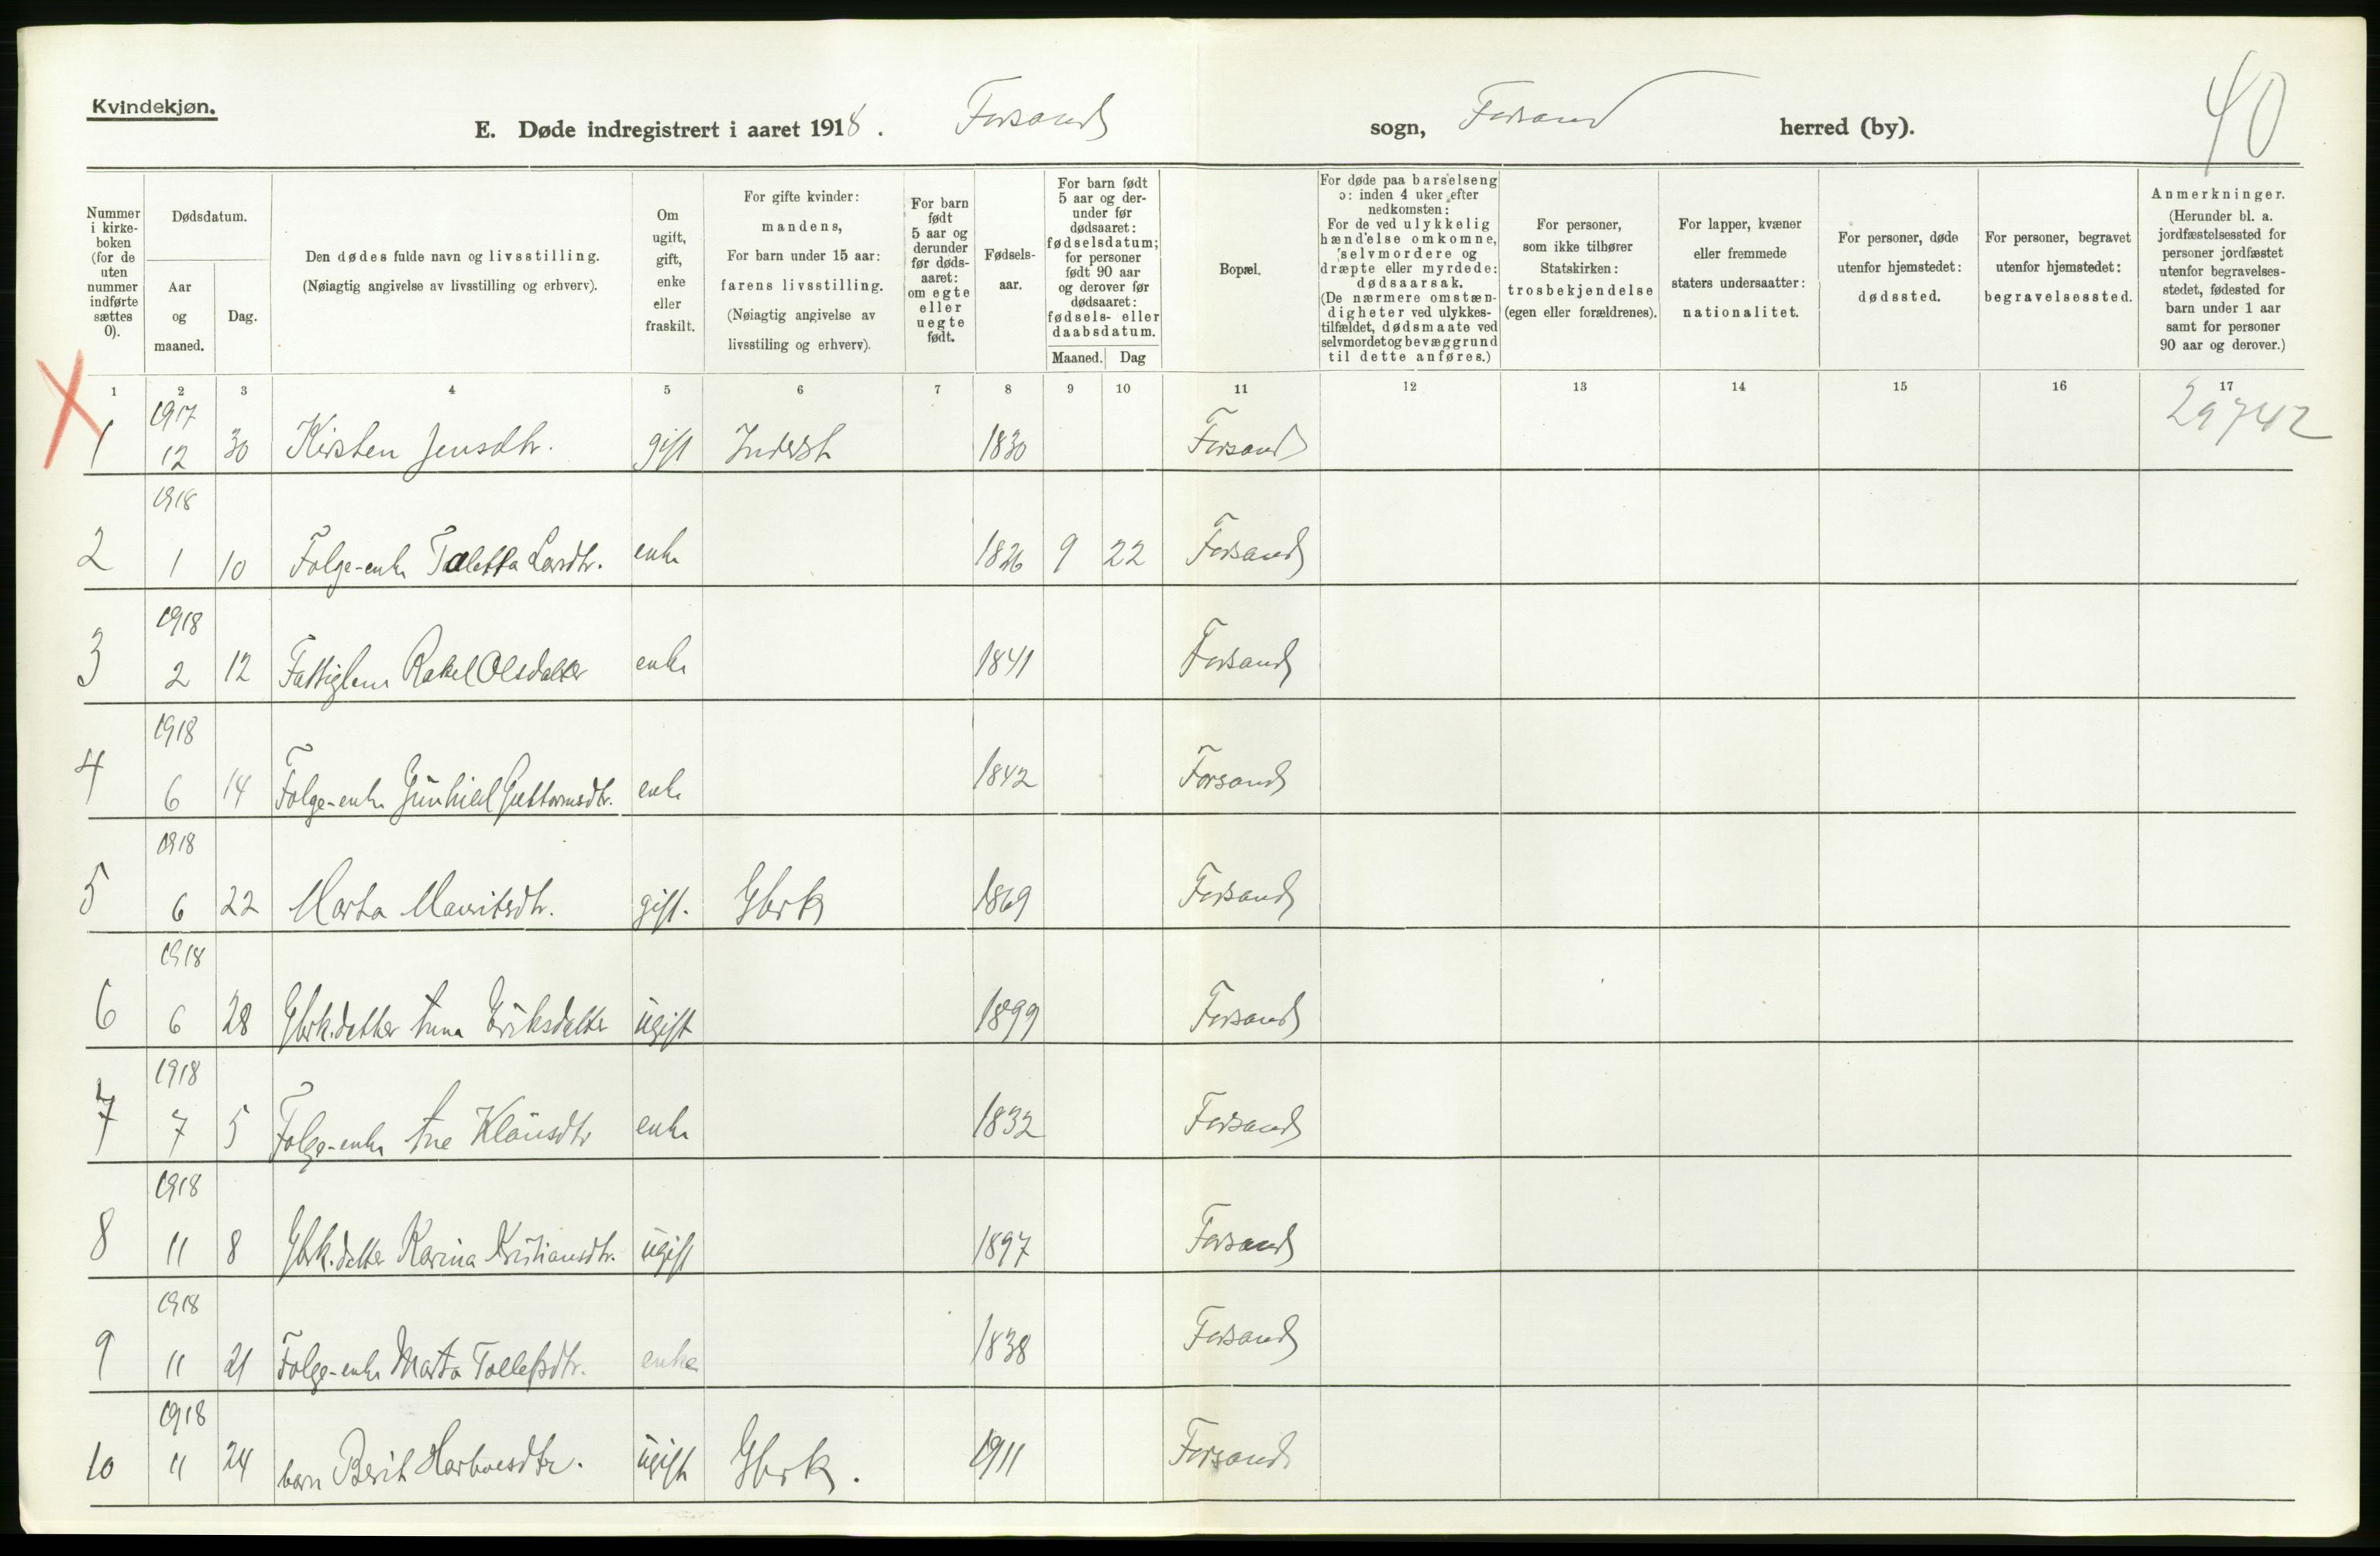 Kvindekjøn.
E. Døde indregistrert i aaret 1918. Forsand sogn, Forsand herred (by).
40
Nummer i kirkeboken (for de uten nummer indførte sættes 0).
Dødsdatum.
Aar og maaned.
Dag.
Den dødes fulde navn og livsstilling.
(Nøiagtig angivelse av livsstilling og erhverv).
Om ugift, gift, enke eller fraskilt.
For gifte kvinder: mandens,
For barn under 15 aar: farens livsstilling.
(Nøiagtig angivelse av livsstiling og erhverv).
For barn født 5 aar og derunder før dødsaaret: om egte eller uegte født.
Fødselsaar.
For barn født 5 aar og derunder før dødsaaret: fødselsdatum; for personer født 90 aar og derover før dødsaaret: fødsels- eller daabsdatum.
Maaned. Dag
Bopæl.
For døde paa barselseng ɔ: inden 4 uker efter nedkomsten:
For de ved ulykkelig hændelse omkomne, selvmordere og dræpte eller myrdede: dødsaarsak.
(De nærmere omstændigheter ved ulykkestilfældet, dødsmaate ved selvmordet og bevæggrund til dette anføres.)
For personer, som ikke tilhører Statskirken: trosbekjendelse (egen eller forældrenes).
For lapper, kvæner eller fremmede staters undersaatter: nationalitet.
For personer, døde utenfor hjemstedet: dødssted.
For personer, begravet utenfor hjemstedet: begravelsessted.
Anmerkninger.
(Herunder bl. a. jordfæstelsessted for personer jordfæstet utenfor begravelsesstedet, fødested for barn under 1 aar samt for personer 90 aar og derover.)
1 2 3 4 5 6 7 8 9 10 11 12 13 14 15 16 17
X 1 1917 12 30 Kirsten Jensdtr. gift Inderst 1830 Forsand 29742
2 1918 1 10 Folge-enke Taletta Larsdtr. enke 1826 9 22 Forsand
3 1918 2 12 Fattiglem Rakel Olsdatter enke 1841 Forsand
4 1918 6 14 Folge-enke Gunhild Guttormsdtr. enke 1842 Forsand
5 1918 6 22 Marta Mauritsdtr. gift. Gbrk 1869 Forsand
6 1918 6 28 Gbrk.datter Anna Eriksdatter ugift 1899 Forsand
7 1918 7 5 Folge-enke Ane Klausdtr enke 1832 Forsand
8 1918 11 8 Gbrk.datter Karina Kristiansdtr. ugift 1897 Forsand
9 1918 11 21 Folge-enke Marta Tollefsdtr. enke 1838 Forsand
10 1918 11 24 barn Berit Harboesdtr. ugift Gbrk. 1911 Forsand